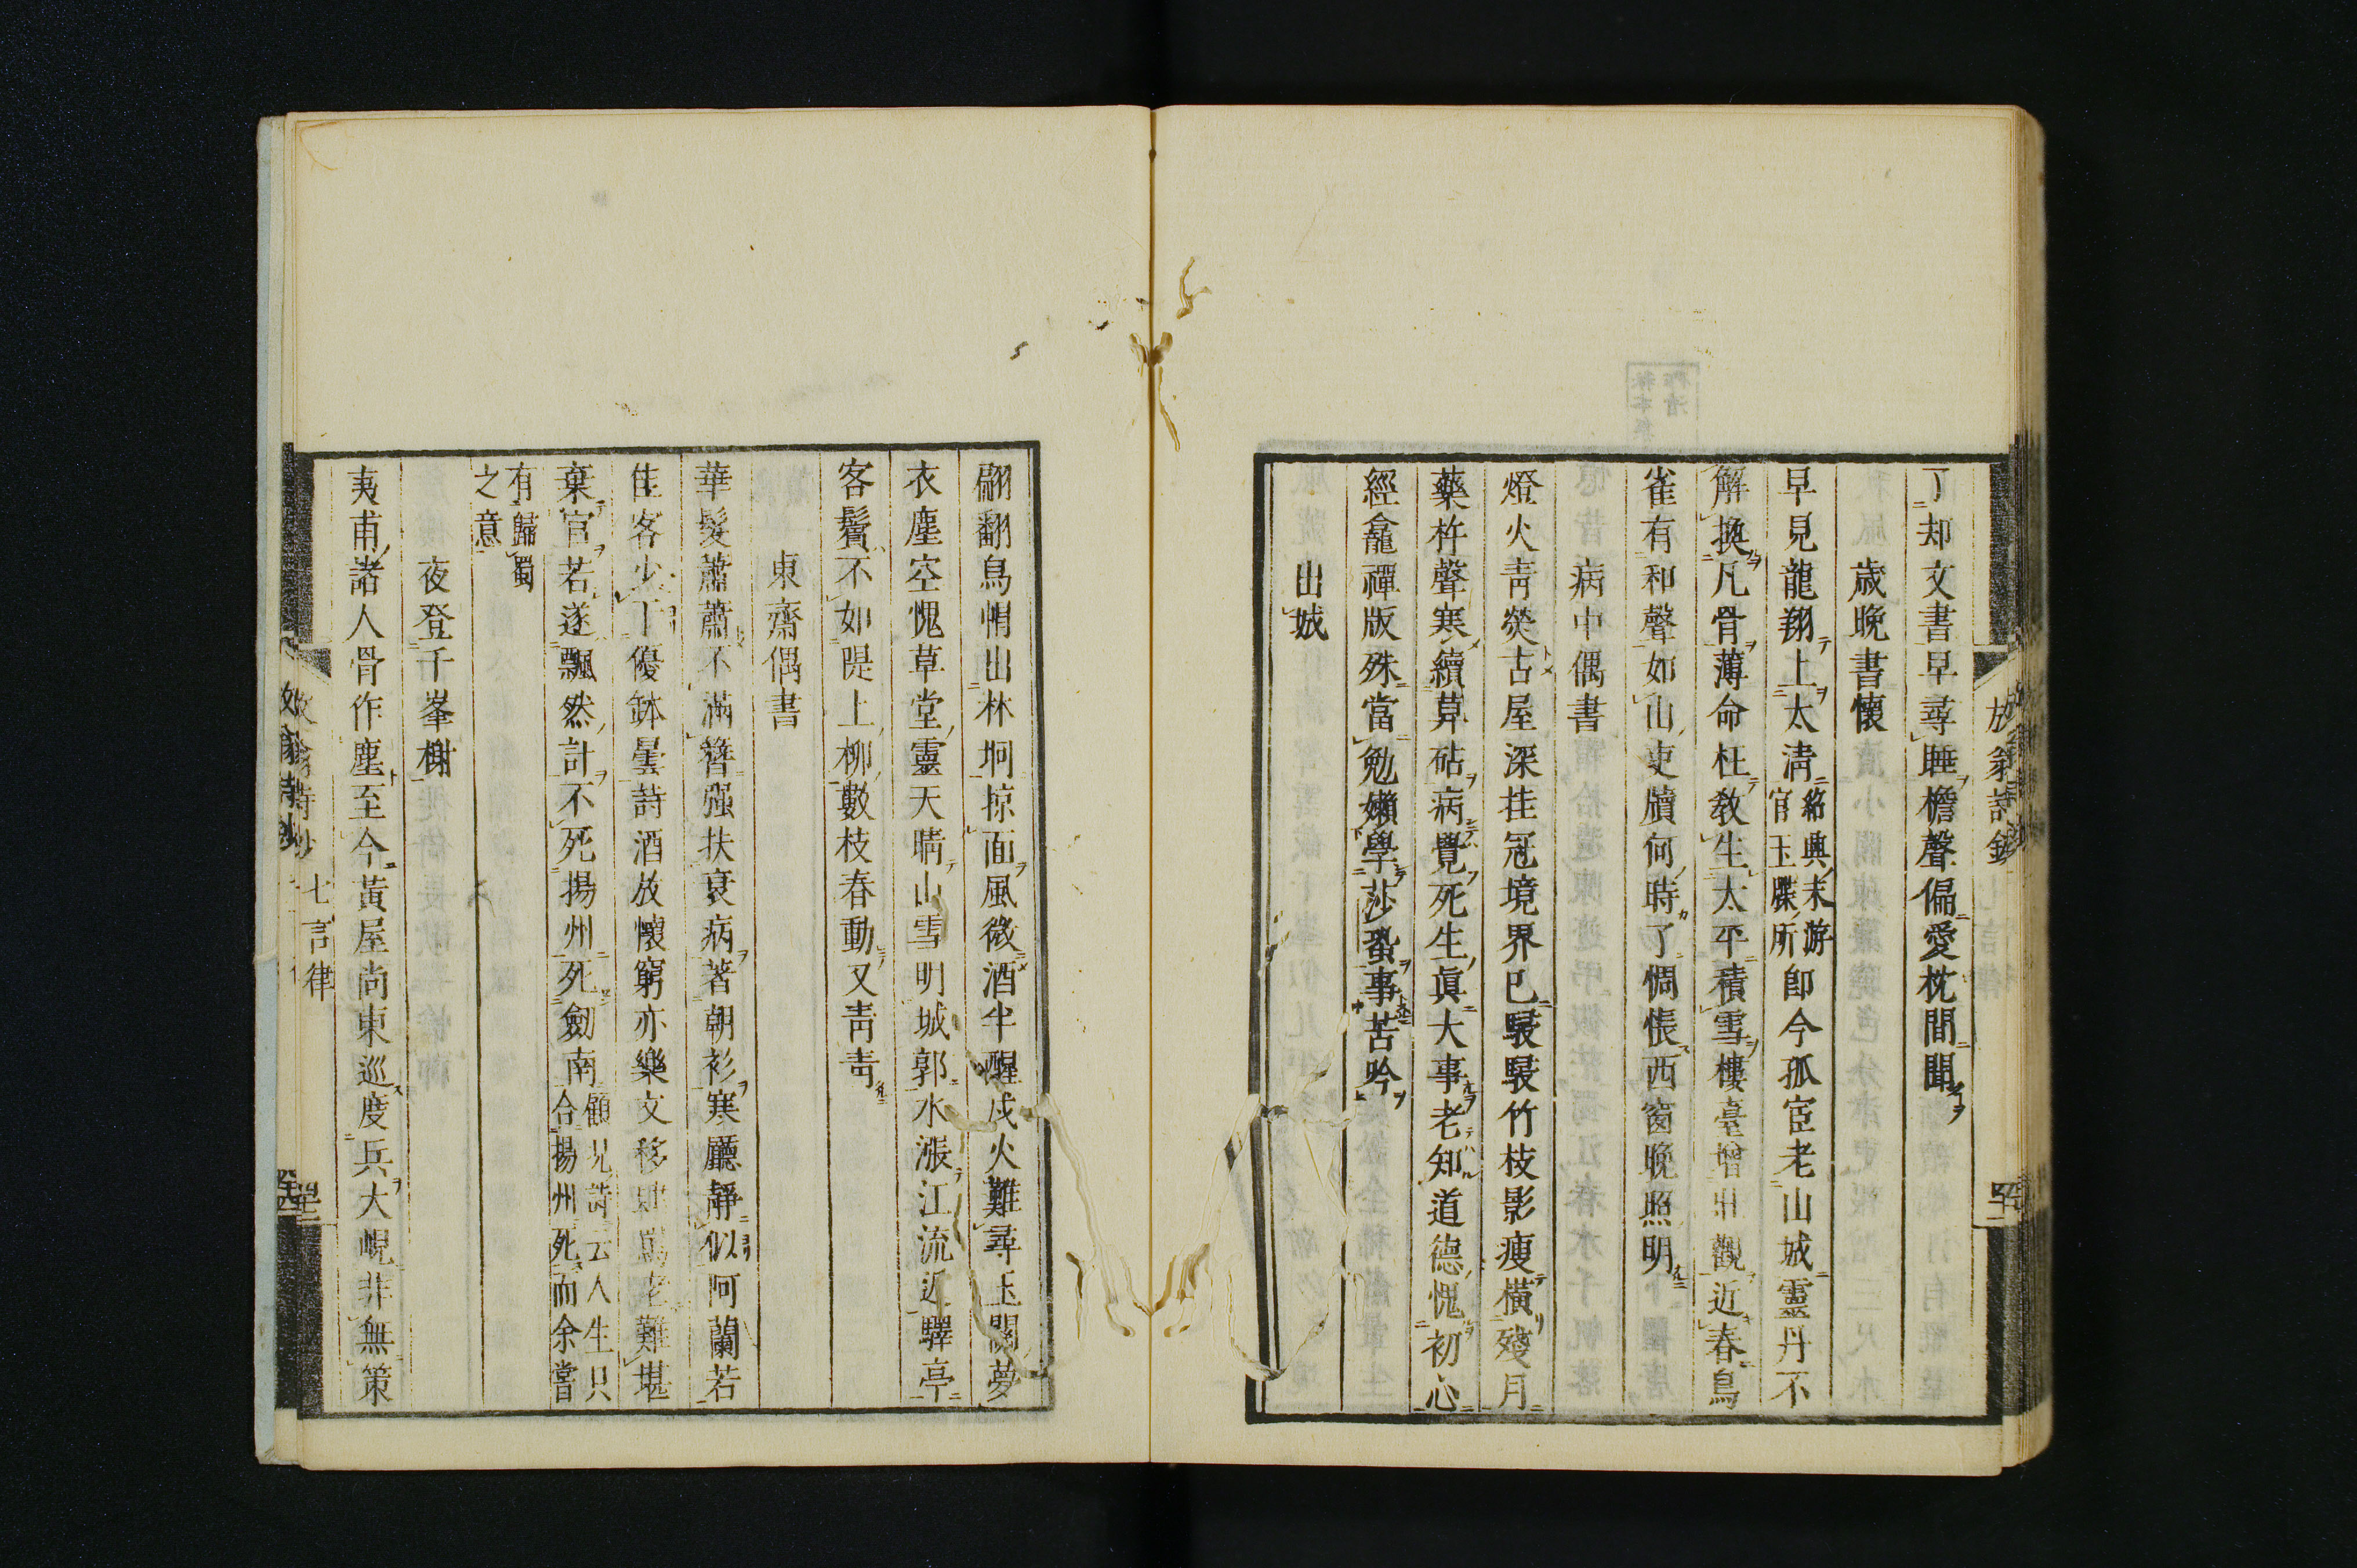 了却文書早尋睡檐聲偏愛枕間聞
歲晚書懷
早見龍翔上太淸紹興末游官玉牒所卽今孤宦老山城靈丹不
解換凡骨薄命枉敎生太平積雪樓臺增壯觀近春鳥
雀有和聲如山吏牘何時了惆悵西窗晚照明
病中偶書
燈火靑熒古屋深挂冠境界已駸駸竹枝影瘦橫殘月
藥杵聲寒續草砧病覺死生眞大事老知道德愧初心
經龕禪版殊當勉嬾學莎蛩事苦吟
出城
翩翻烏帽出林坰掠面風微酒半醒戍火難尋玉關夢
衣塵空愧草堂靈天晴山雪明城郭水漲江流近驛亭
客鬢不如隄上柳數枝春動又靑靑
東齋偶書
華髮蕭蕭不滿簪强扶衰病著朝衫寒廳靜似阿蘭若
佳客少於優鉢曇詩酒放懷窮亦樂文移肆罵老難堪
棄官若遂飄然計不死揚州死劒南顧况詩云人生只合揚州死而余嘗
有歸蜀之意
夜登千峯榭
夷甫諸人骨作塵至今黃屋尚東巡度兵大峴非無策
放翁詩鈔
七言律